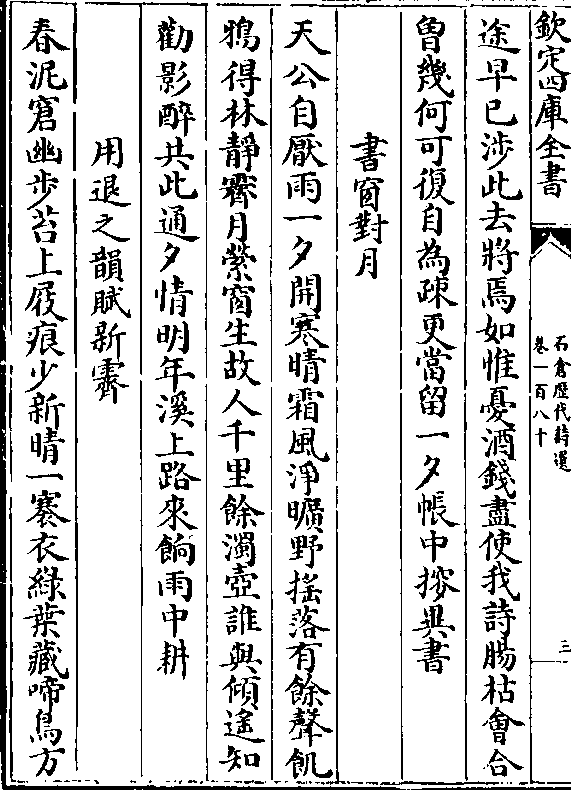 欽定四庫全書
石倉歴代詩選
卷一百八十
三
途早已涉此去將焉如惟憂酒錢盡使我詩腸枯會合
曾幾何可復自為疎更當留一夕帳中搜異書
書窗對月
天公自厭雨一夕開寒晴霜風淨曠野揺落有餘聲飢
鴉得林靜霽月縈窗生故人千里餘濁壺誰與傾遥知
勸影醉共此通夕情明年溪上路來餉雨中耕
用退之韻賦新霽
春泥窘幽步苔上屐痕少新晴一褰衣綠葉藏啼鳥方